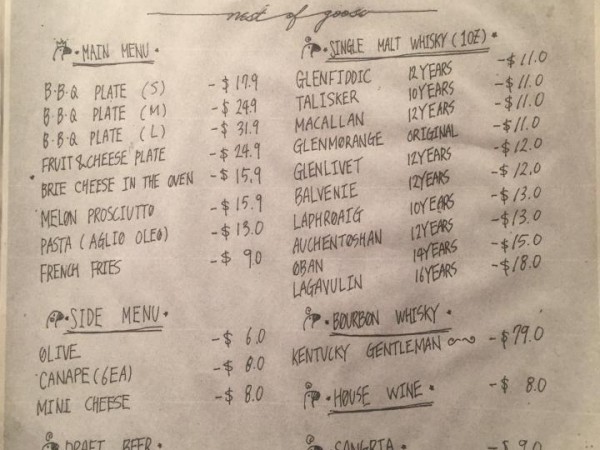 nest of goose
MAIN MENU
B·B·Q PLATE (S) -$ 17.9
B·B·Q PLATE (M) -$ 24.9
B·B·Q PLATE (L) -$ 31.9
FRUIT & CHEESE PLATE -$ 24.9
BRIE CHEESE IN THE OVEN -$ 15.9
MELON PROSCIUTTO -$ 15.9
PASTA (AGLIO OLEO) -$ 13.0
FRENCH FRIES -$ 9.0
SIDE MENU
OLIVE -$ 6.0
CANAPE (6EA) -$ 8.0
MINI CHEESE -$ 8.0
DRAFT BEER
SINGLE MALT WHISKY (1OZ)
GLENFIDDIC 12YEARS -$ 11.0
TALISKER 10YEARS -$ 11.0
MACALLAN 12YEARS -$ 11.0
GLENMORANGE ORIGINAL -$ 11.0
GLENLIVET 12YEARS -$ 12.0
BALVENIE 12YEARS -$ 12.0
LAPHROAIG 10YEARS -$ 13.0
AUCHENTOSHAN 12YEARS -$ 13.0
OBAN 14YEARS -$ 15.0
LAGAVULIN 16YEARS -$ 18.0
BOURBON WHISKY
KENTUCKY GENTLEMAN -$ 79.0
HOUSE WINE -$ 8.0
SANGRIA -$ 9.0